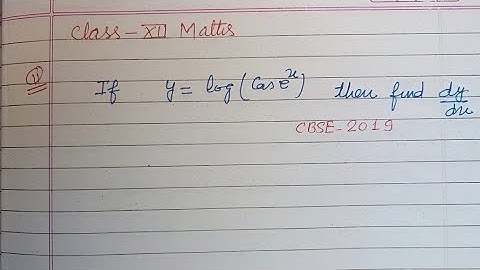 Class - XII Maths
11 If y = log(Cos e^x) then find dy/dx
CBSE - 2019